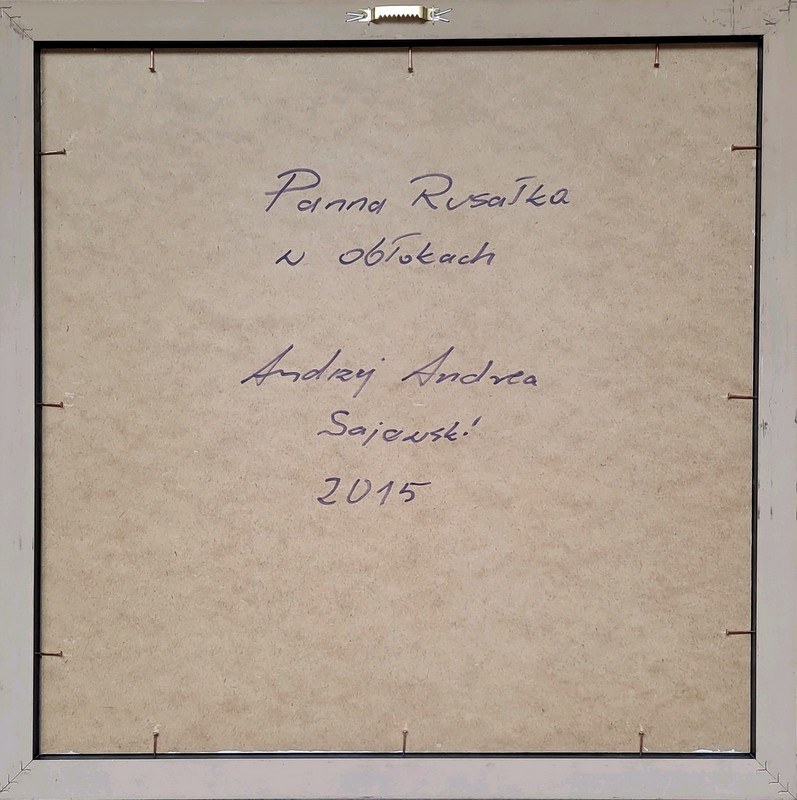 Panna Rusałka
w obłokach
Andrzej Andrea
Sajewski
2015